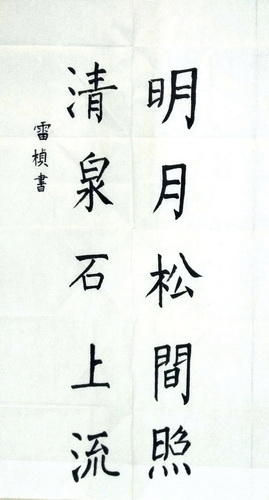 明月松間照
清泉石上流
雷楨書